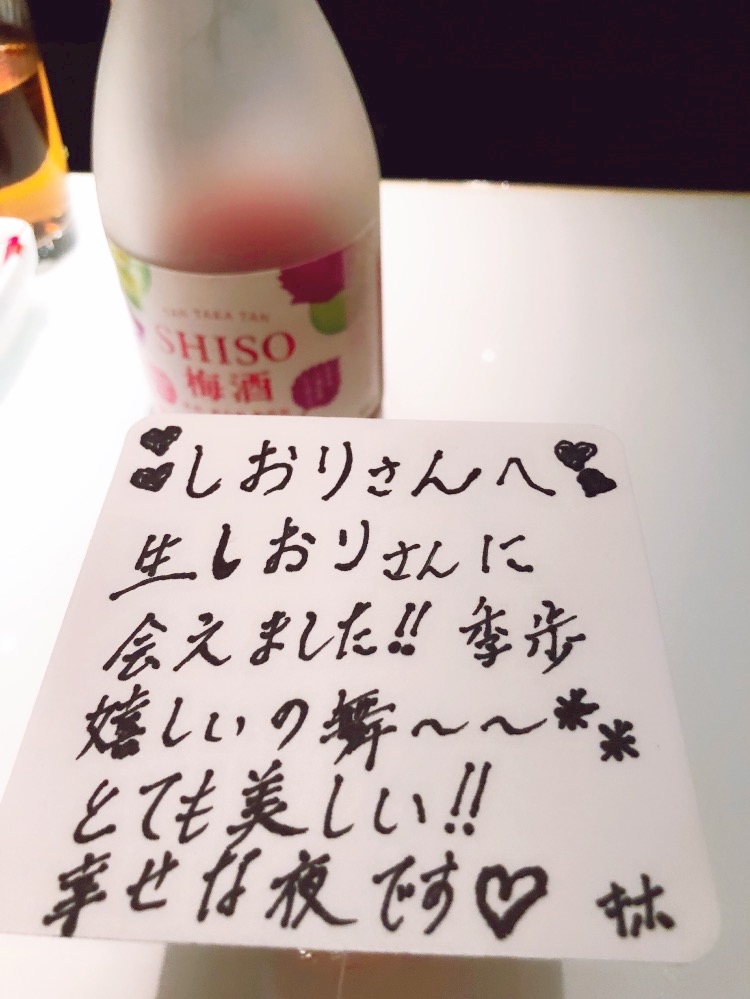 TAN TAKA TAN
SHISO
梅酒
しおりさんへ
生しおりさんに
会えました!! 季歩
嬉しいの舞〜〜**
とても美しい!!
幸せな夜です♡ 林